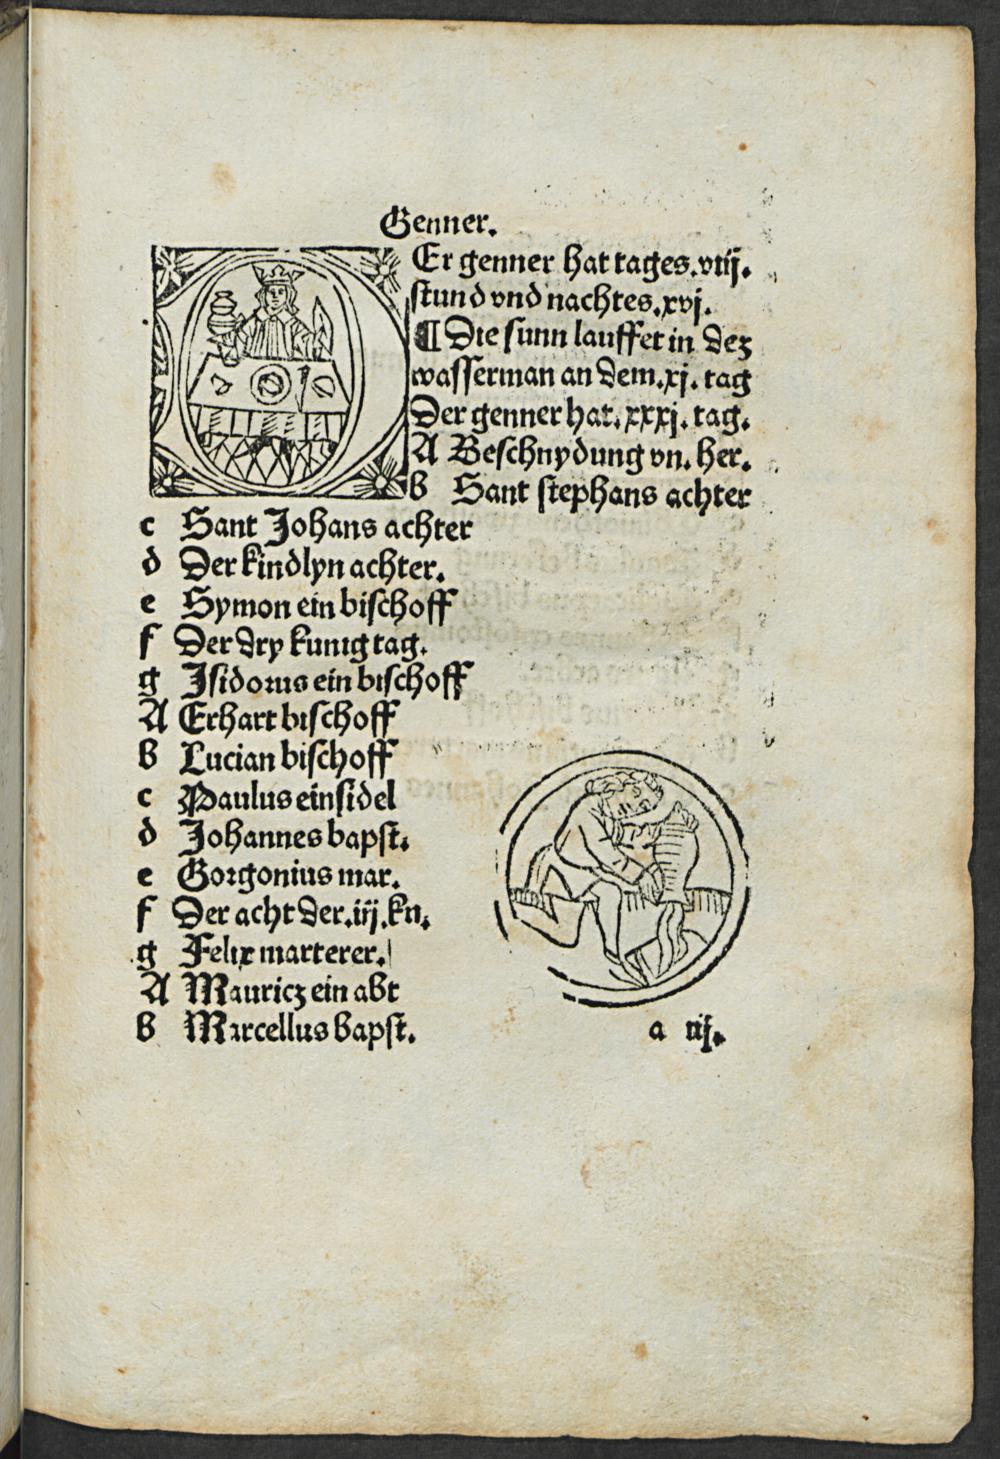 Genner.
Er genner hat tages.viij.
stund vnd nachtes.xvj.
¶ Die sunn lauffet in dez
wasserman an dem.xj. tag
Der genner hat.xxxj.tag.
A Beschnydung vn. her.
b Sant stephans achter
c Sant Johans achter
d Der kindlyn achter.
e Symon ein bischoff
f Der dry kunig tag.
g Isidorus ein bischoff
A Erhart bischoff
b Lucian bischoff
c Paulus einsidel
d Johannes bapst.
e Gorgonius mar.
f Der acht der.iij.kn.
g Felix marterer.
A Mauricz ein abt
b Marcellus bapst.
a iij.